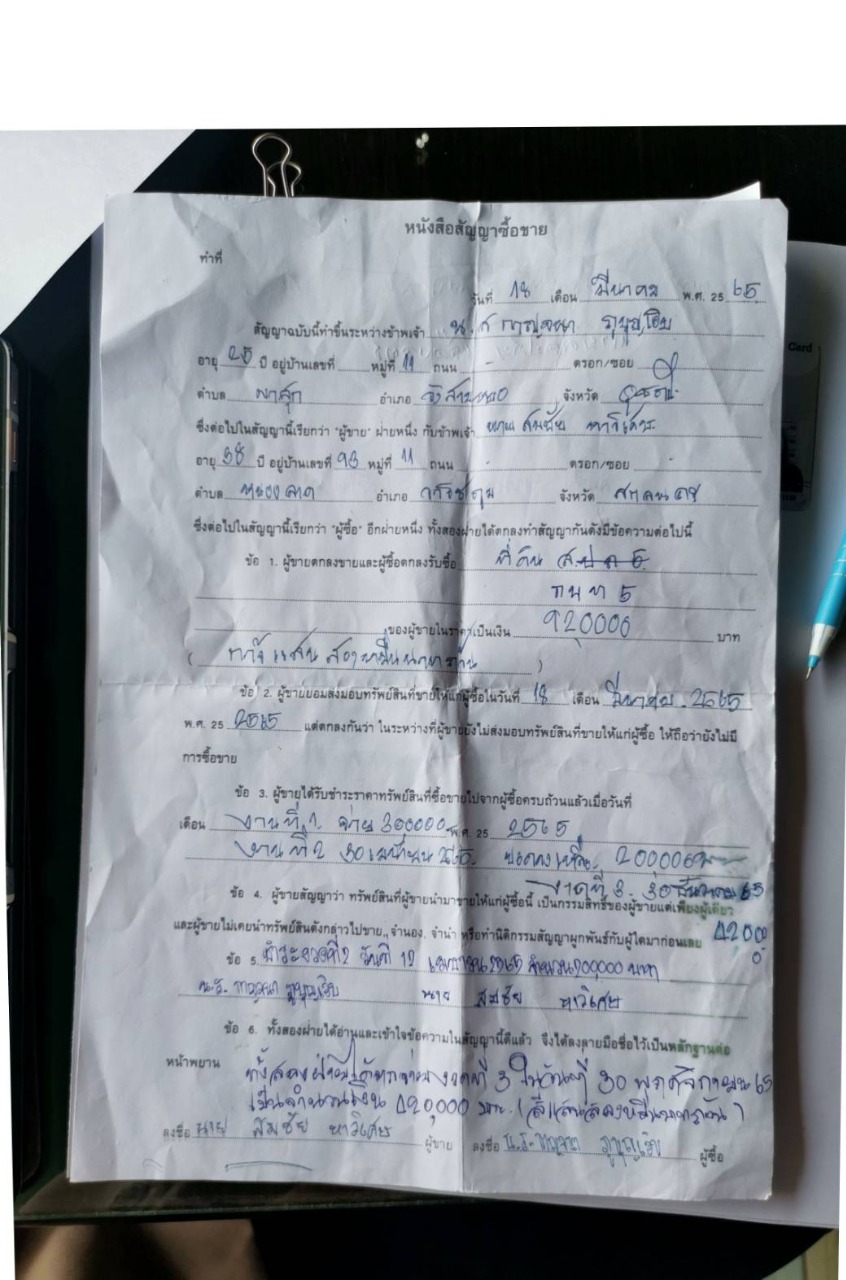 หนังสือสัญญาซื้อขาย
ทำที่
วันที่ 18 เดือน มีนาคม พ.ศ. 25 65
สัญญาฉบับนี้ทำขึ้นระหว่างข้าพเจ้า น.ส กาญจนา
อายุ 25 ปี อยู่บ้านเลขที่ หมู่ที่ 11 ถนน - ตรอก/ซอย
ตำบล ผาสุก อำเภอ วังสามหมอ จังหวัด อุดรธานี
ซึ่งต่อไปในสัญญานี้เรียกว่า "ผู้ขาย" ฝ่ายหนึ่ง กับข้าพเจ้า นาย สมชัย หาวิเศษ
อายุ 58 ปี อยู่บ้านเลขที่ 93 หมู่ที่ 11 ถนน - ตรอก/ซอย -
ตำบล หนองลาด อำเภอ จังหวัด สกลนคร
ซึ่งต่อไปในสัญญานี้เรียกว่า "ผู้ซื้อ" อีกฝ่ายหนึ่ง ทั้งสองฝ่ายได้ตกลงทำสัญญากันดังมีข้อความต่อไปนี้
ข้อ 1. ผู้ขายตกลงขายและผู้ซื้อตกลงรับซื้อ ที่ดิน
ภบท 5
ของผู้ขายในราคาเป็นเงิน 920000 บาท
( เก้าแสนสองหมื่นบาทถ้วน )
ข้อ 2. ผู้ขายยอมส่งมอบทรัพย์สินที่ขายให้แก่ผู้ซื้อในวันที่ 18 เดือน มีนาคม. 2565
พ.ศ. 25 2565 แต่ตกลงกันว่า ในระหว่างที่ผู้ขายยังไม่ส่งมอบทรัพย์สินที่ขายให้แก่ผู้ซื้อ ให้ถือว่ายังไม่มี
การซื้อขาย
ข้อ 3. ผู้ขายได้รับชำระราคาทรัพย์สินที่ซื้อขายไปจากผู้ซื้อครบถ้วนแล้วเมื่อวันที่
เดือน งานที่ 1. จ่าย 300000 พ.ศ. 25 2565
งานที่ 2 30 เมษายน 2565. 200000
งาดที่ 3. 30 ธันวาคม 65
ข้อ 4. ผู้ขายสัญญาว่า ทรัพย์สินที่ผู้ขายนำมาขายให้แก่ผู้ซื้อนี้ เป็นกรรมสิทธิ์ของผู้ขายแต่เพียงผู้เดียว
และผู้ขายไม่เคยนำทรัพย์สินดังกล่าวไปขาย, จำนอง, จำนำ หรือทำนิติกรรมสัญญาผูกพันธ์กับผู้ใดมาก่อนเลย 4200
0
ข้อ 5. ชำระงวดที่2 วันที่ 12 เมษายน 2565 จำนวน 200000 บาท
น.ส. กาญจนา นาย สมชัย หาวิเศษ
ข้อ 6. ทั้งสองฝ่ายได้อ่านและเข้าใจข้อความในสัญญานี้ดีแล้ว จึงได้ลงลายมือชื่อไว้เป็นหลักฐานต่อ
หน้าพยาน ทั้งสองฝ่ายได้ งวดที่ 3 ในวันที่ 30 พฤศจิกายน 65
เป็นจำนวนเงิน 420,000 บาท. (สี่แสนสองหมื่นบาทถ้วน)
ลงชื่อ นาย สมชัย หาวิเศษ ผู้ขาย ลงชื่อ น.ส. กาญจนา ผู้ซื้อ
Card